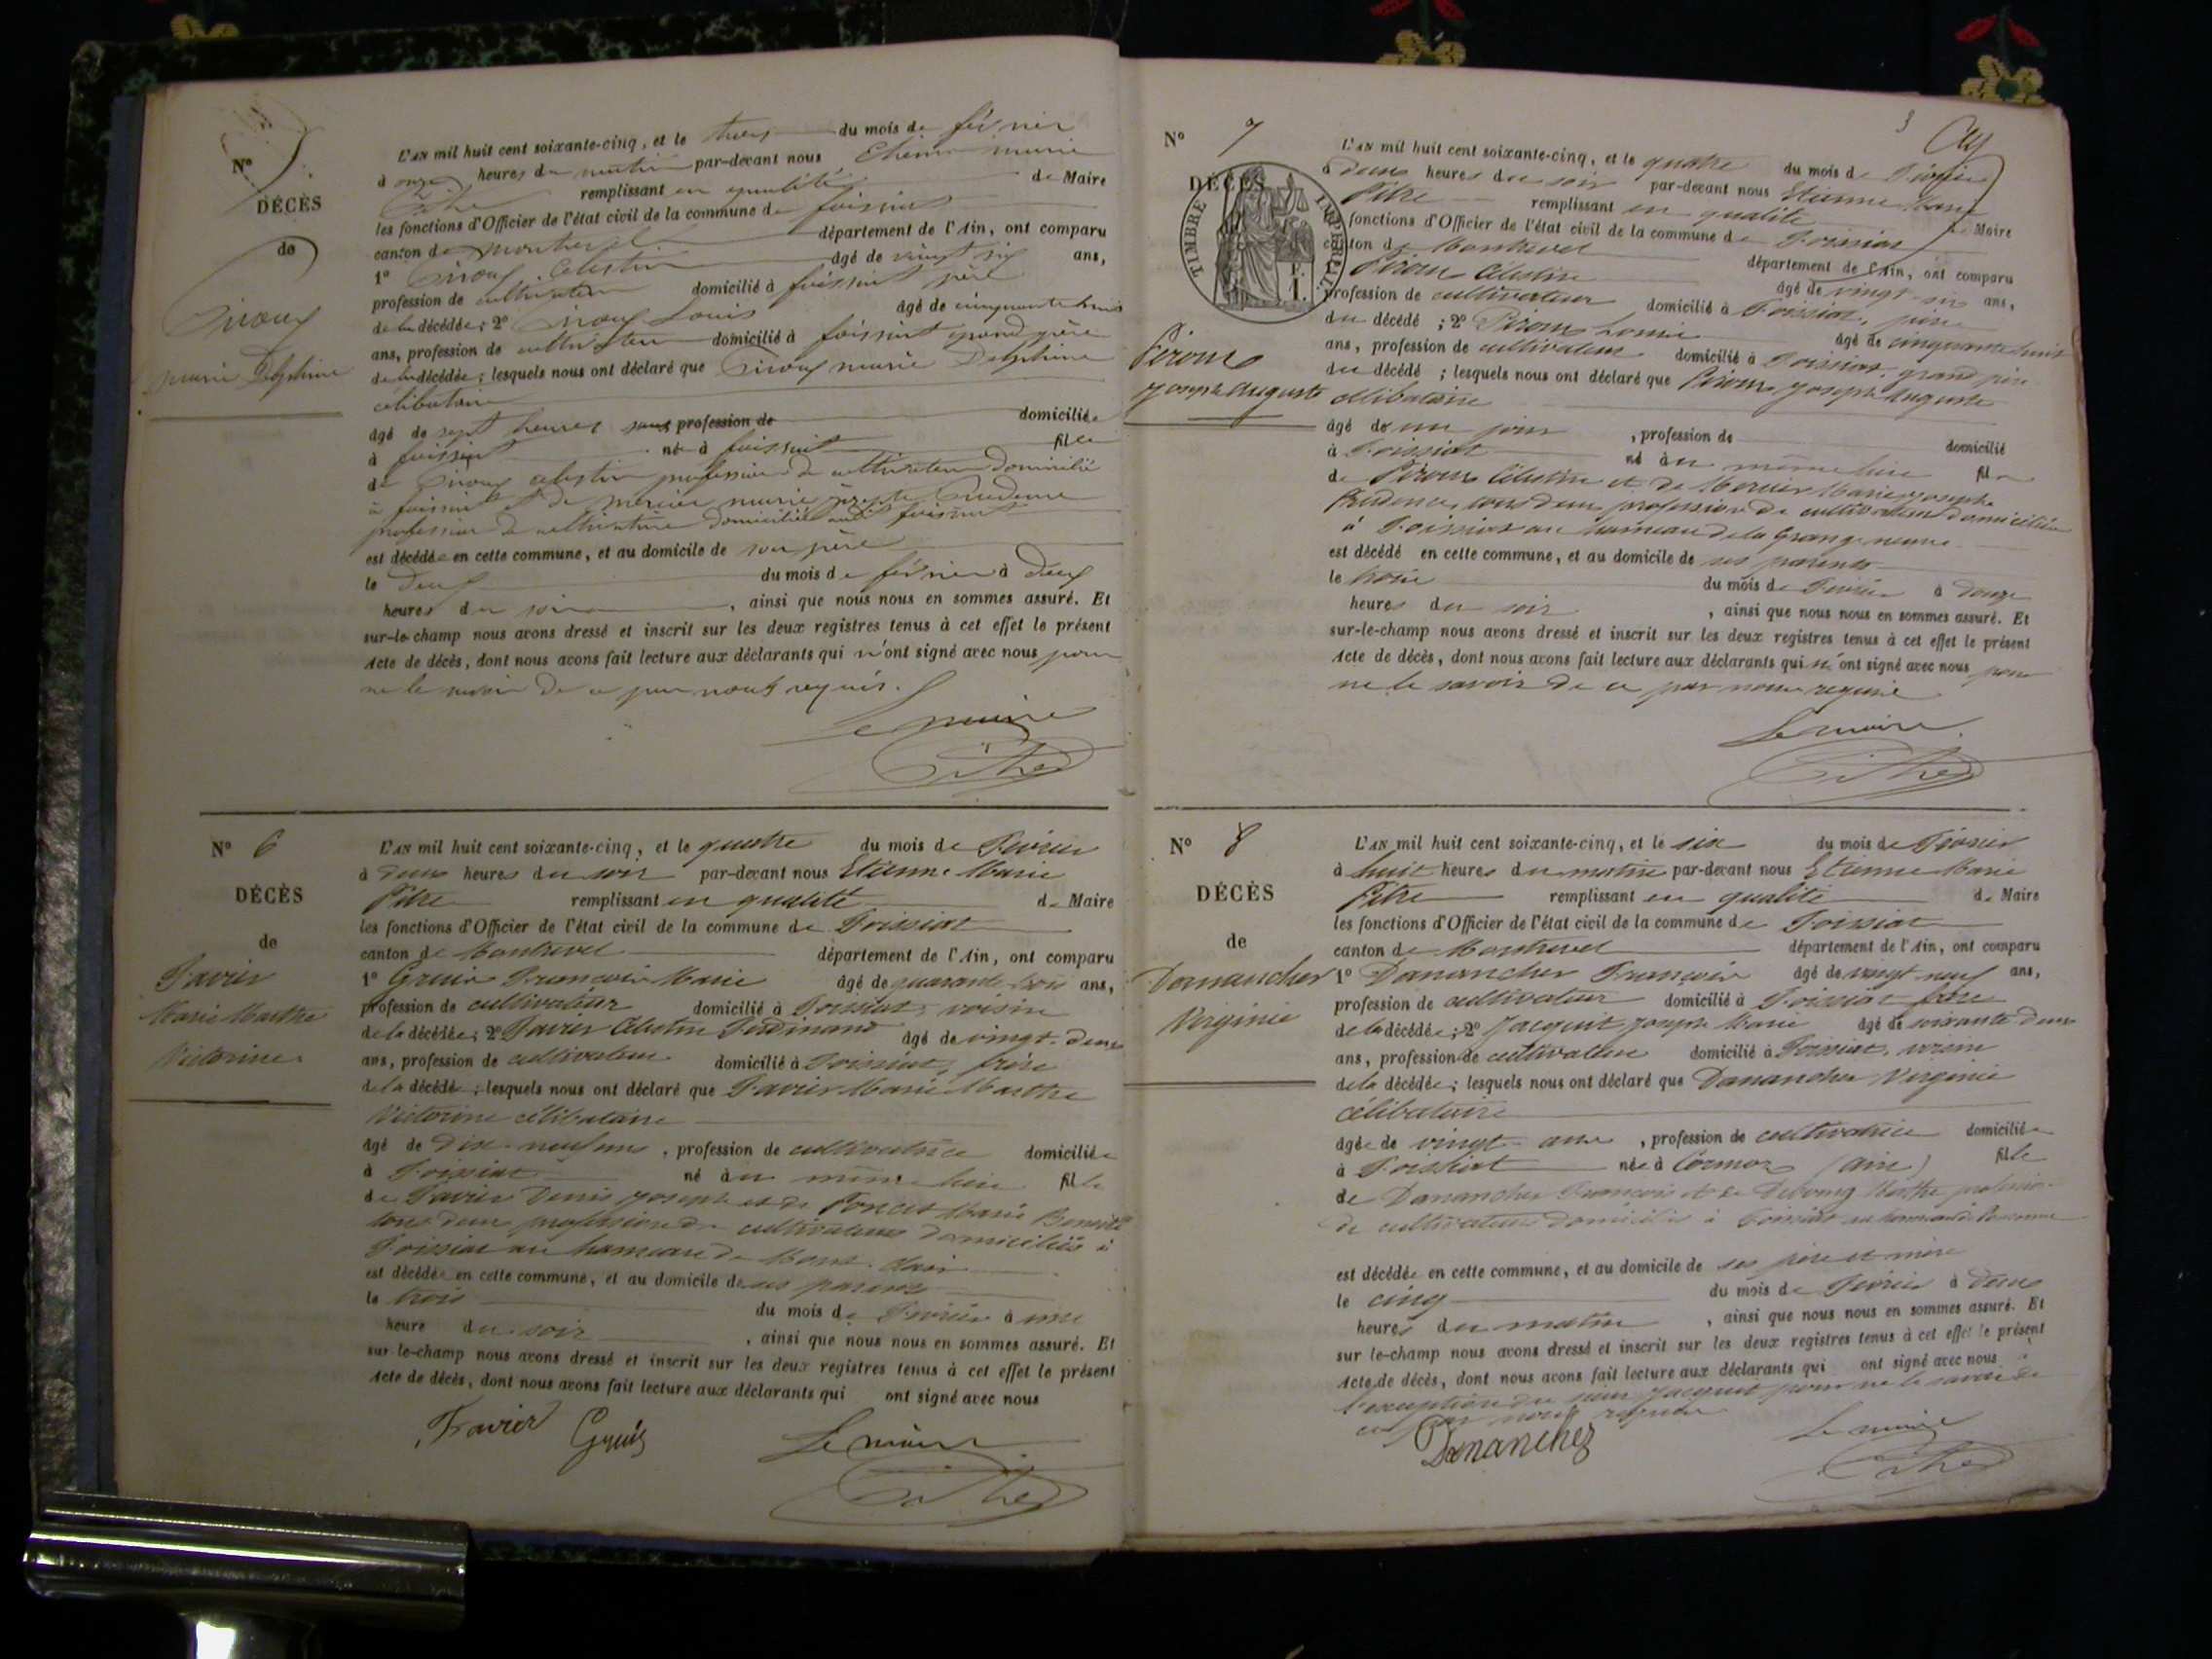 N°
DÉCÈS
de
Piroux
marie Delphine
L'AN mil huit cent soixante-cinq, et le trois du mois de février
à onze heures du matin par-devant nous Etienne marie
Pitre remplissant en qualité de Maire
les fonctions d'Officier de l'état civil de la commune de foissiat
canton de montrevel département de l'Ain, ont comparu
1° Piroux Celestin âgé de vingt six ans,
profession de cultivateur domicilié à foissiat père
de la décédée; 2° Piroux Louis âgé de cinquante huit
ans, profession de cultivateur domicilié à foissiat grand père
de la décédée; lesquels nous ont déclaré que Piroux marie Delphine
célibataire
âgé de sept heures sans profession de domiciliée
à foissiat né à foissiat fille
de Piroux celestin profession de cultivateur domicilié
à foissiat et de mercier marie josephe Prudence
profession de cultivatrice domiciliée audit foissiat
est décédée en cette commune, et au domicile de son père
le deux du mois de février à deux
heures du soir, ainsi que nous nous en sommes assuré. Et
sur-le-champ nous avons dressé et inscrit sur les deux registres tenus à cet effet le présent
Acte de décès, dont nous avons fait lecture aux déclarants qui n'ont signé avec nous pour
ne le savoir de ce par nous requis.
Le maire
Pitre
N° 6
DÉCÈS
de
Favier
Marie Marthe
Victorine
L'AN mil huit cent soixante-cinq, et le quatre du mois de Février
à deux heures du soir par-devant nous Etienne Marie
Pitre remplissant en qualité de Maire
les fonctions d'Officier de l'état civil de la commune de Foissiat
canton de Montrevel département de l'Ain, ont comparu
1° François Marie âgé de quarante trois ans,
profession de cultivateur domicilié à Foissiat, voisin
de la décédée; 2° Favier Célestin Ferdinand âgé de vingt-deux
ans, profession de cultivateur domicilié à Foissiat, frère
de la décédée; lesquels nous ont déclaré que Favier Marie Marthe
Victorine célibataire
âgé de dix-neuf ans, profession de cultivatrice domiciliée
à Foissiat né au même lieu fille
de Favier Denis joseph et de Poncet Marie Benoite
tous deux profession de cultivateurs domiciliés à
Foissiat au hameau de
est décédée en cette commune, et au domicile de ses parents
le trois du mois de Février à une
heure du soir, ainsi que nous nous en sommes assuré. Et
sur-le-champ nous avons dressé et inscrit sur les deux registres tenus à cet effet le présent
Acte de décès, dont nous avons fait lecture aux déclarants qui ont signé avec nous
Favier Le maire
Pitre
3
N° 7
DÉCÈS
TIMBRE IMPERIAL
1 F.
Piroux
Joseph Auguste
L'AN mil huit cent soixante-cinq, et le quatre du mois de Février
à deux heures du soir par-devant nous Etienne Marie
Pitre remplissant en qualité de Maire
fonctions d'Officier de l'état civil de la commune de Foissiat
canton de Montrevel département de l'Ain, ont comparu
Piroux Célestin âgé de vingt-six ans,
profession de cultivateur domicilié à Foissiat, père
du décédé; 2° Piroux Louis âgé de cinquante huit
ans, profession de cultivateur domicilié à Foissiat, grand père
du décédé; lesquels nous ont déclaré que Piroux Joseph Auguste
célibataire
âgé de un jour, profession de domicilié
à Foissiat né au même lieu fils
de Piroux Célestin et de Mercier Marie josephe
Prudence, tous deux profession de cultivateurs domiciliés
à Foissiat au hameau de la Grange neuve
est décédé en cette commune, et au domicile de ses parents
le trois du mois de Février à douze
heures du soir, ainsi que nous nous en sommes assuré. Et
sur-le-champ nous avons dressé et inscrit sur les deux registres tenus à cet effet le présent
Acte de décès, dont nous avons fait lecture aux déclarants qui n'ont signé avec nous pour
ne le savoir de ce par nous requis
Le maire.
Pitre
N° 8
DÉCÈS
de
Danancher
Virginie
L'AN mil huit cent soixante-cinq, et le six du mois de Février
à huit heures du matin par-devant nous Etienne Marie
Pitre remplissant en qualité de Maire
les fonctions d'Officier de l'état civil de la commune de Foissiat
canton de Montrevel département de l'Ain, ont comparu
1° Danancher François âgé de vingt neuf ans,
profession de cultivateur domicilié à Foissiat frère
de la décédée; 2° Jacquit Joseph Marie âgé de soixante deux
ans, profession de cultivateur domicilié à Foissiat, voisin
de la décédée; lesquels nous ont déclaré que Danancher Virginie
célibataire
âgée de vingt-ans, profession de cultivatrice domiciliée
à Foissiat née à Cormoz (ain) fille
de Danancher François et de Debourg Marthe profession
de cultivateurs domiciliés à Foissiat au hameau de
est décédée en cette commune, et au domicile de ses père et mère
le cinq du mois de Février à deux
heures du matin, ainsi que nous nous en sommes assuré. Et
sur le-champ nous avons dressé et inscrit sur les deux registres tenus à cet effet le présent
Acte de décès, dont nous avons fait lecture aux déclarants qui ont signé avec nous à
l'exception du sieur Jacquit pour ne le savoir de
ce par nous requis
Dananchez Le maire
Pitre